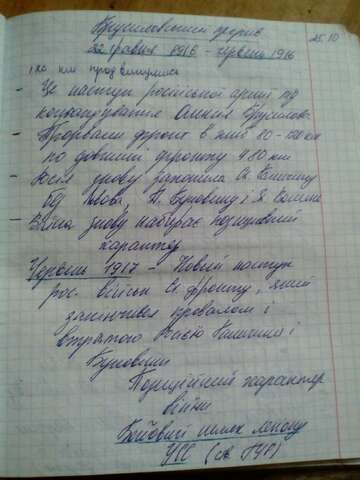 Брусиловський прорив
25.10
22 травня 1916 - червень 1916
120 км продвинулися
Це наступ російської армії під
командування Олексія Брусилова.
Прорвали фронт в глиб 80 - 120 км
по довжині фронту 480 км
Росія знову захопила Сх. Галичину
без Львова, П. Буковину і
Війна знову набирає позиційний
характер
Червень 1917 - Новий наступ
рос. військ Сх. фронту, який
закінчився провалом і
втратою Росією Галичини і
Буковини
Позиційний характер
війни
Бойовий шлях легіону
УСС